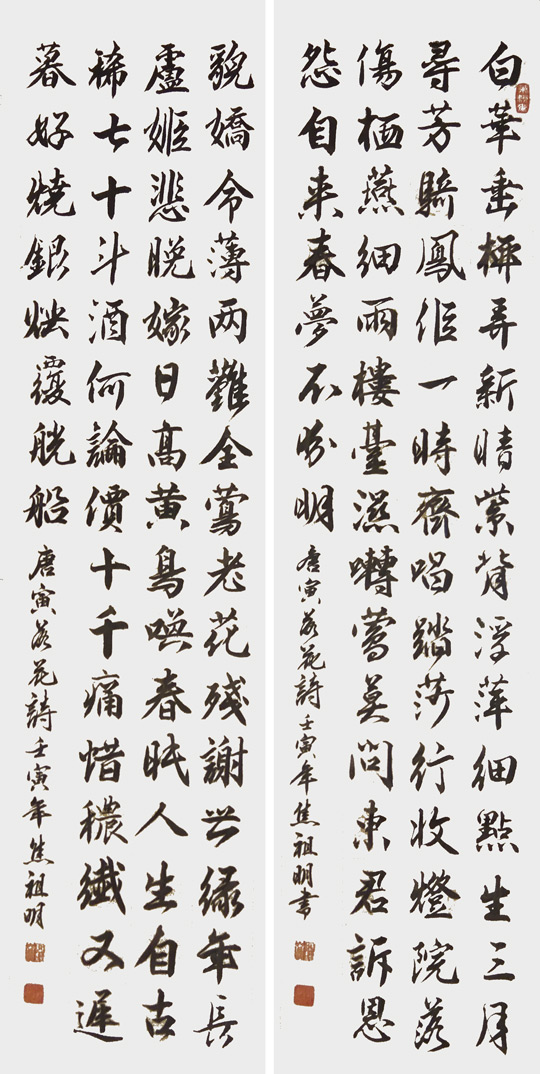 白華垂枰弄新晴紫背浮萍細點生三月
尋芳騎鳳作一時齊唱踏莎行收燈院落
傷栖燕細雨樓臺濕囀鶯莫問東君訴恩
怨自来春夢不分明
唐寅落花詩壬寅年焦祖明書
貌嬌令薄两難全鶯老花残謝世緣年長
盧姬悲晚嫁日高黄鳥喚春眠人生自古
稀七十斗酒何論價十千痛惜穠纖又遲
暮好燒銀燭覆觥船
唐寅落花詩壬寅年焦祖明